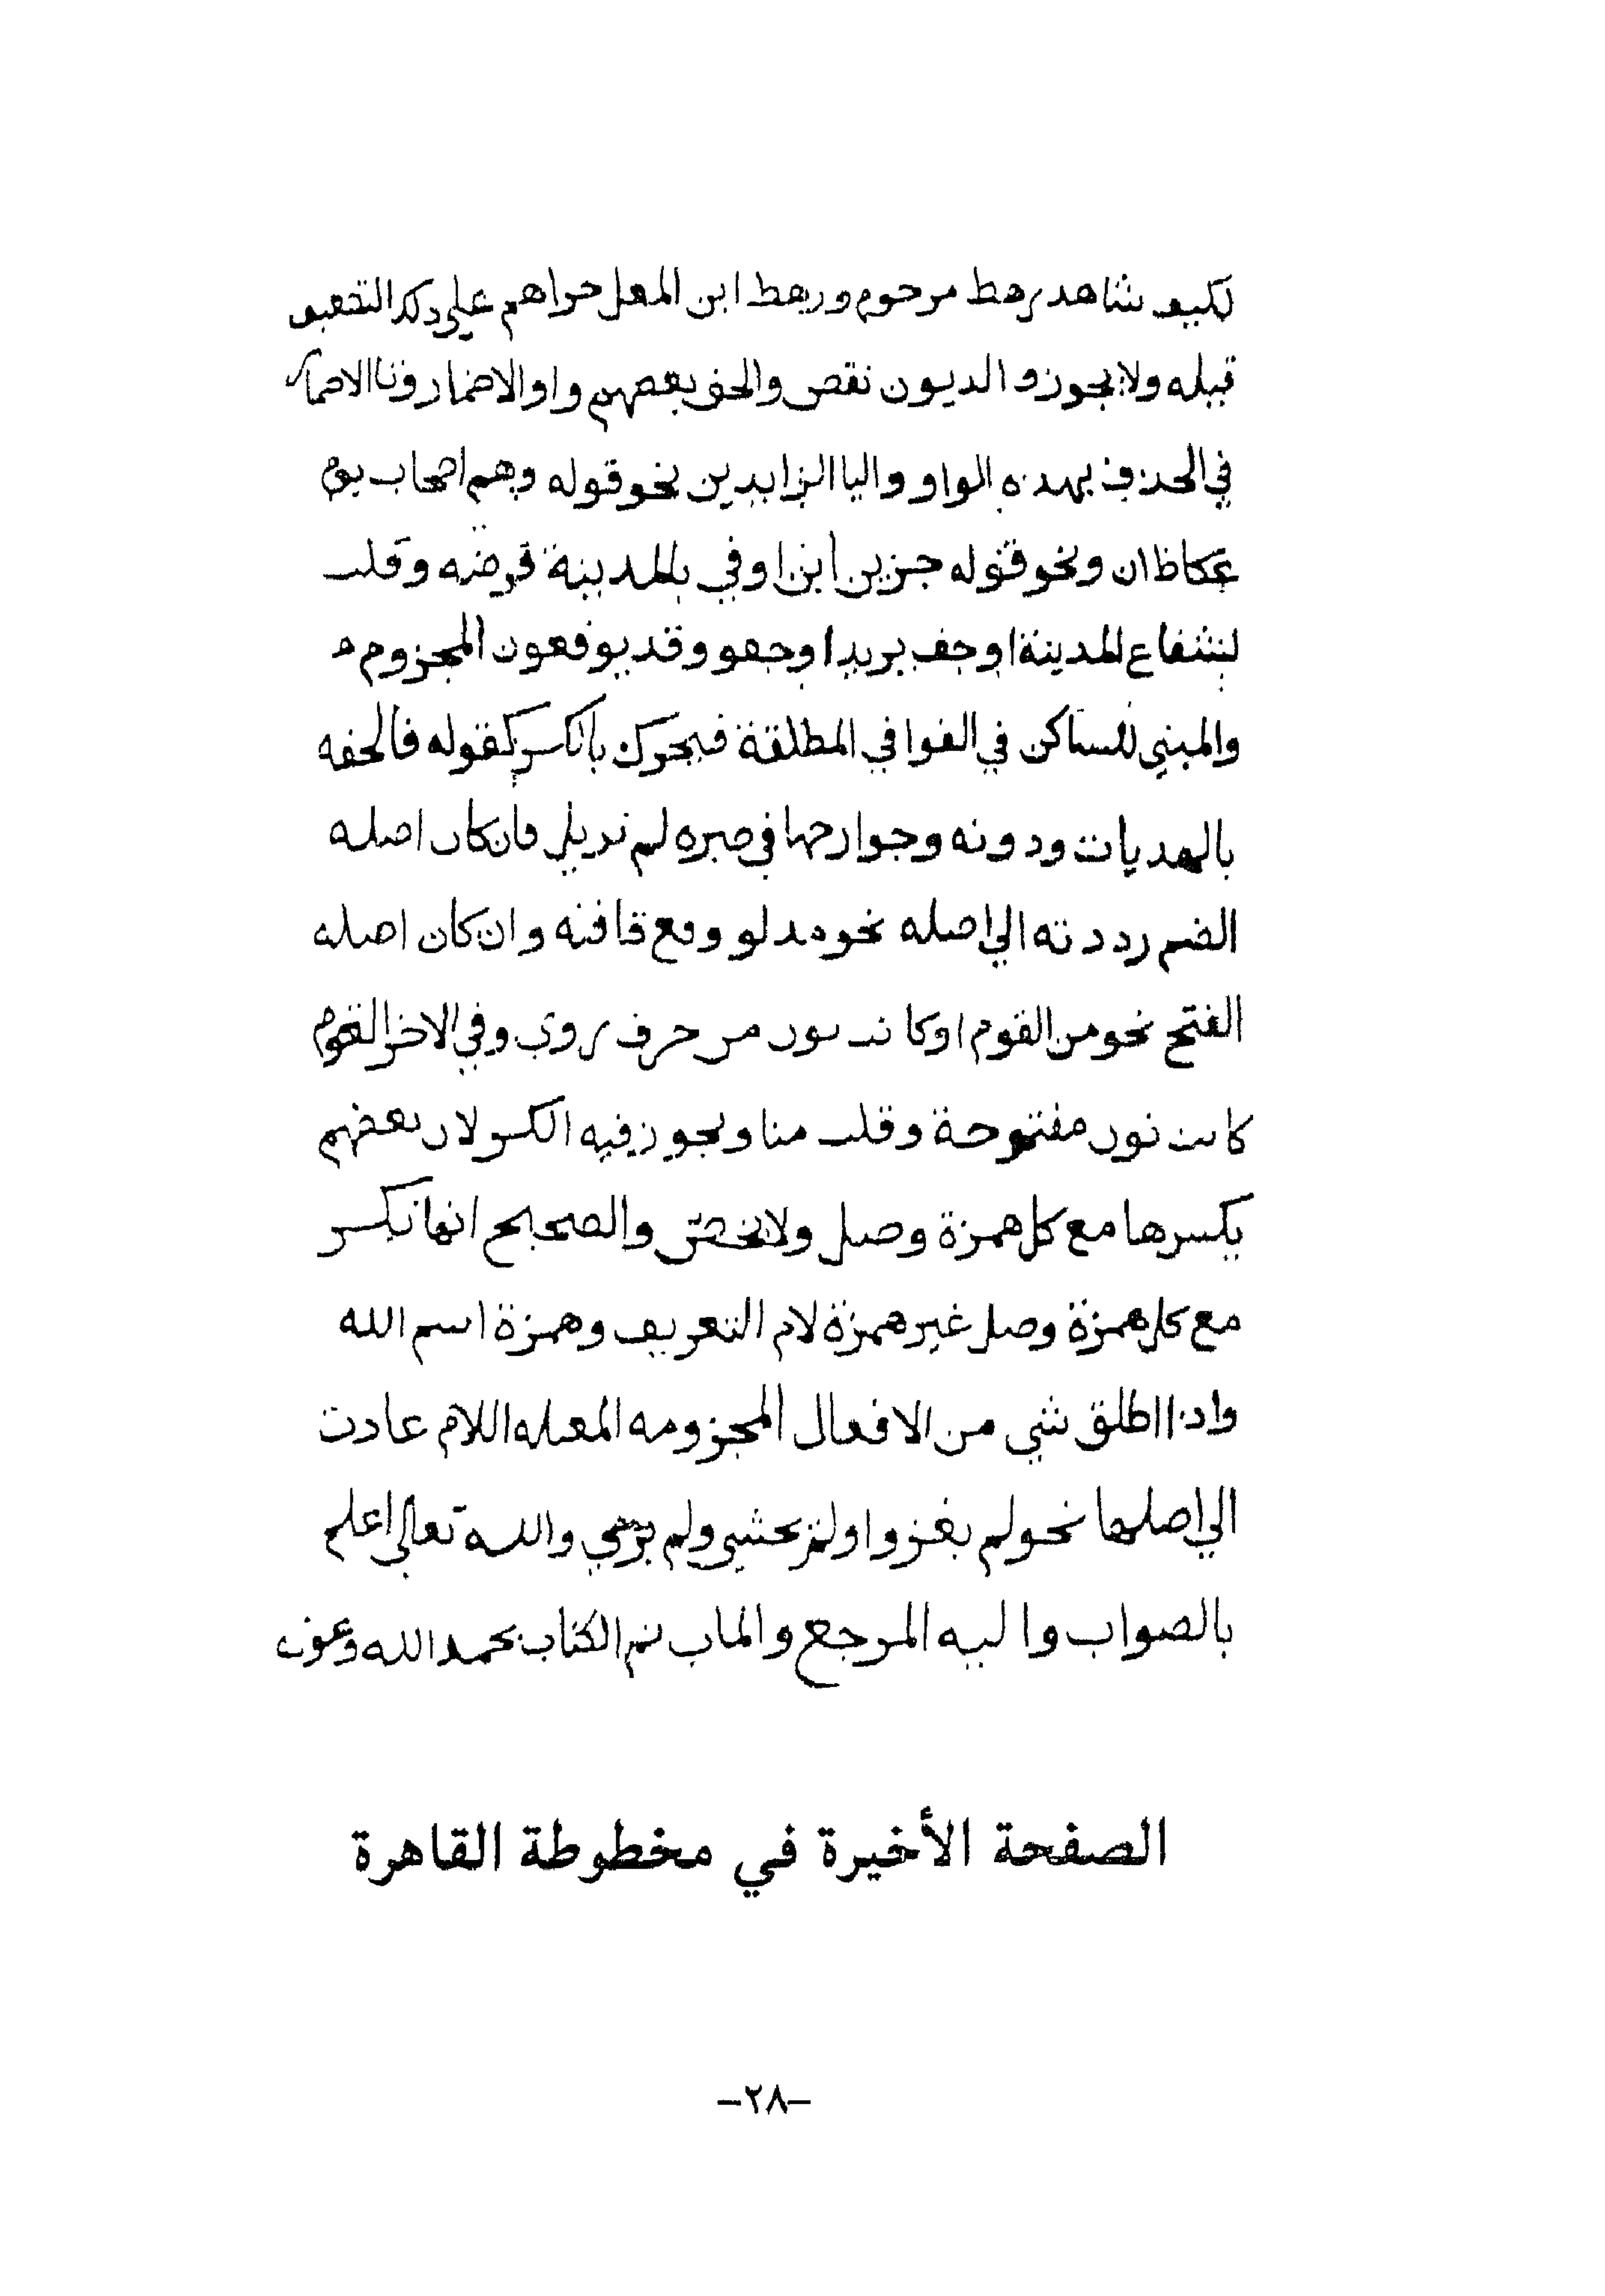 لكيف شاهد رهط مرحوم ورهط ابن المعل حراهم على ذلك التضعيف
قبله ولا يجوز و الديون نقص والحق بعضهم واو الاضمار ونا الاضمار
في الحذف بهذه الواو واليا الزايدين نحو قوله وهم اصحاب يوم
عكاظ ان ونحو قوله جزين ابن اوفي بالمدينة قرضه وقلت
لشفاع المدينة اوجف يريد اوجفو وقد يوقعون المجزوم م
والمبني للساكن في القوافي المطلقة فيحرك بالكسر كقوله فالحقه
بالهديات ودونه وجوارحها في صره لم تزيل فان كان اصله
الضم رددته الي اصله نحو مدلو ومع قافته وان كان اصله
الفتح نحو من القوم اوكانت نون من حرف روي وفي الاخر القوم
كانت نون مفتوحة وقلت منا ويجوز فيه الكسر لان بعضهم
يكسرها مع كل همزة وصل ولا يخص والصحيح انها تكسر
مع كل همزة وصل غير همزة لام التعريف وهمزة اسم الله
واذا اطلق شي من الافعال المجزومه المعله اللام عادت
الي اصلها نحو لم يغزوا ولم يخشى ولم يرمي والله تعالى اعلم
بالصواب واليه المرجع والماب تم الكتاب بحمد الله وعون
الصفحة الأخيرة في مخطوطة القاهرة
–٢٨–